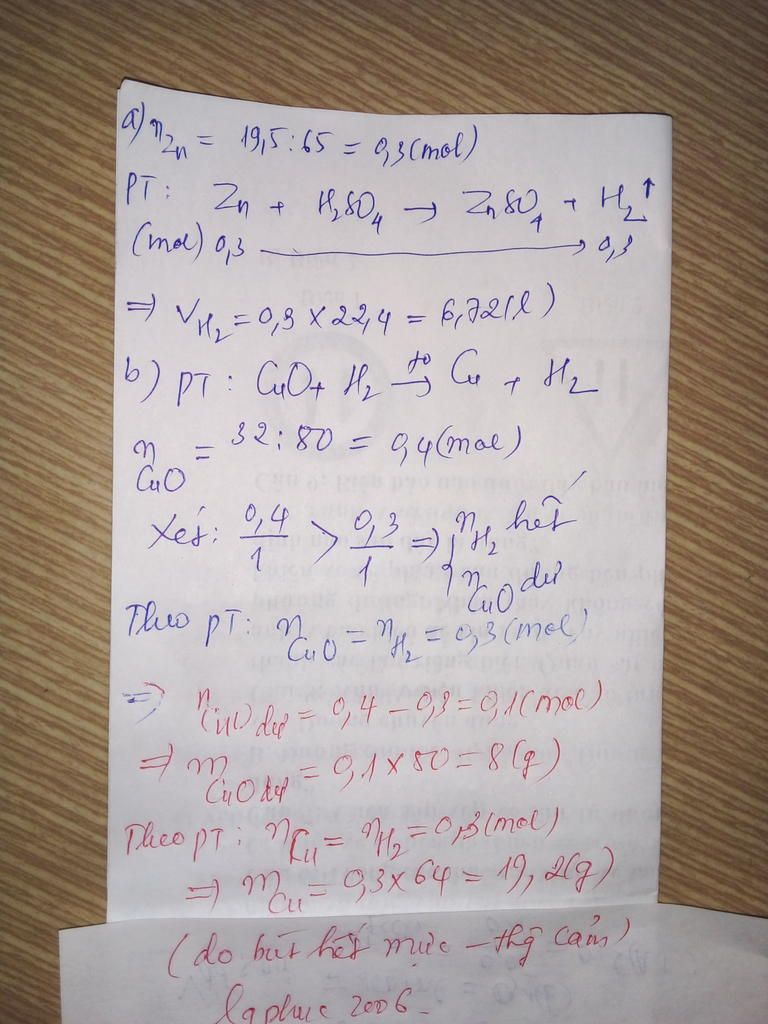 a) nZn = 19,5 : 65 = 0,3 (mol)
PT: Zn + H2SO4 → ZnSO4 + H2↑
(mol) 0,3 → 0,3
=> VH2 = 0,3 x 22,4 = 6,72 (l)
b) PT: CuO + H2 →to Cu + H2
nCuO = 32 : 80 = 0,4 (mol)
Xét: 0,4/1 > 0,3/1 => { nH2 hết
nCuO dư
Theo PT: nCuO = nH2 = 0,3 (mol)
=> nCuO dư = 0,4 - 0,3 = 0,1 (mol)
=> mCuO dư = 0,1 x 80 = 8 (g)
Theo PT: nCu = nH2 = 0,3 (mol)
=> mCu = 0,3 x 64 = 19,2 (g)
(do bút hết mực - thg cảm)
2006